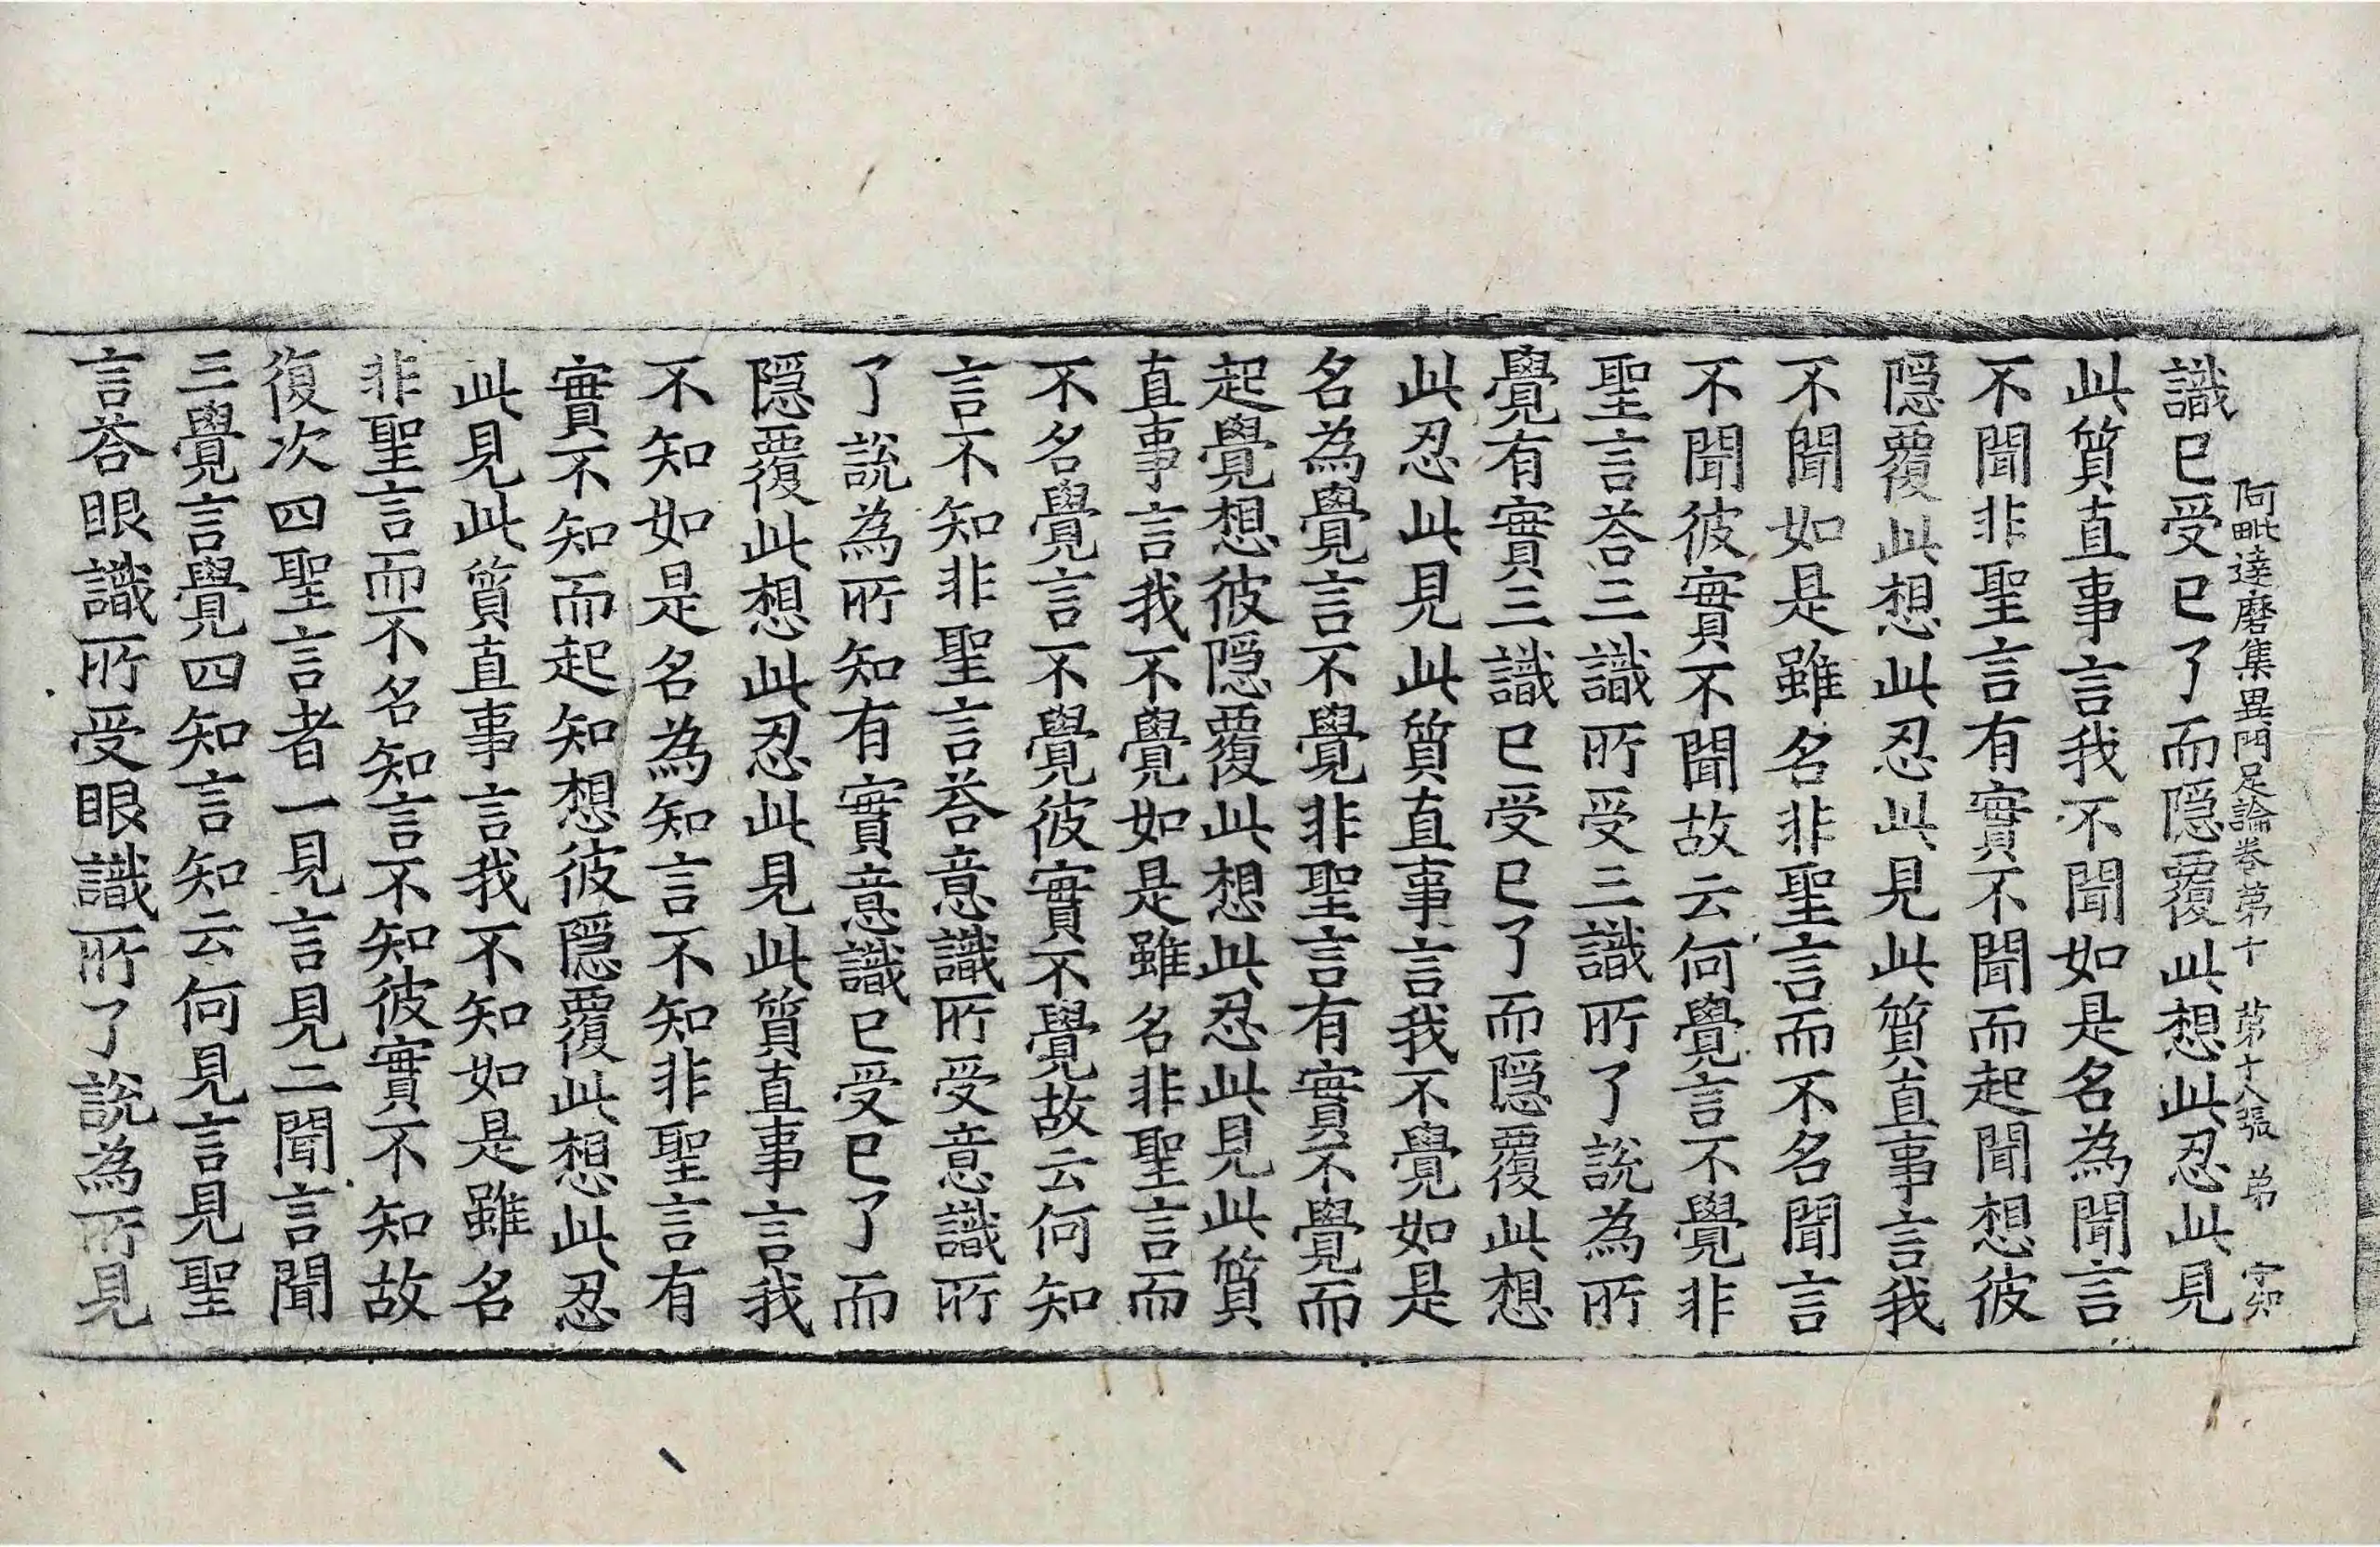 阿毗達磨集異門足論卷第十 第十八張 弟 字知
識已受已了而隱覆此想此忍此見
此質直事言我不聞如是名為聞言
不聞非聖言有實不聞而起聞想彼
隱覆此想此忍此見此質直事言我
不聞如是雖名非聖言而不名聞言
不聞彼實不聞故云何覺言不覺非
聖言荅三識所受三識所了說為所
覺有實三識已受已了而隱覆此想
此忍此見此質直事言我不覺如是
名為覺言不覺非聖言有實不覺而
起覺想彼隱覆此想此忍此見此質
直事言我不覺如是雖名非聖言而
不名覺言不覺彼實不覺故云何知
言不知非聖言荅意識所受意識所
了說為所知有實意識已受已了而
隱覆此想此忍此見此質直事言我
不知如是名為知言不知非聖言有
實不知而起知想彼隱覆此想此忍
此見此質直事言我不知如是雖名
非聖言而不名知言不知彼實不知故
復次四聖言者一見言見二聞言聞
三覺言覺四知言知云何見言見聖
言荅眼識所受眼識所了說為所見